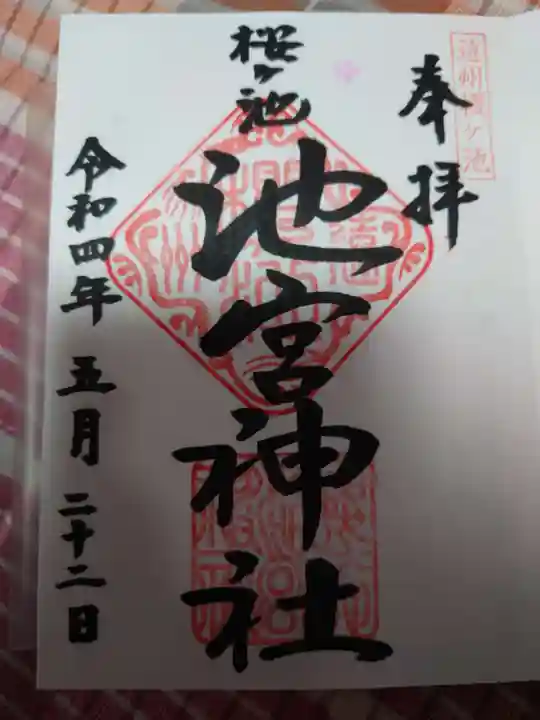 遠州桜ケ池
奉拝
桜ヶ池
池宮神社
令和四年 五月 二十二日